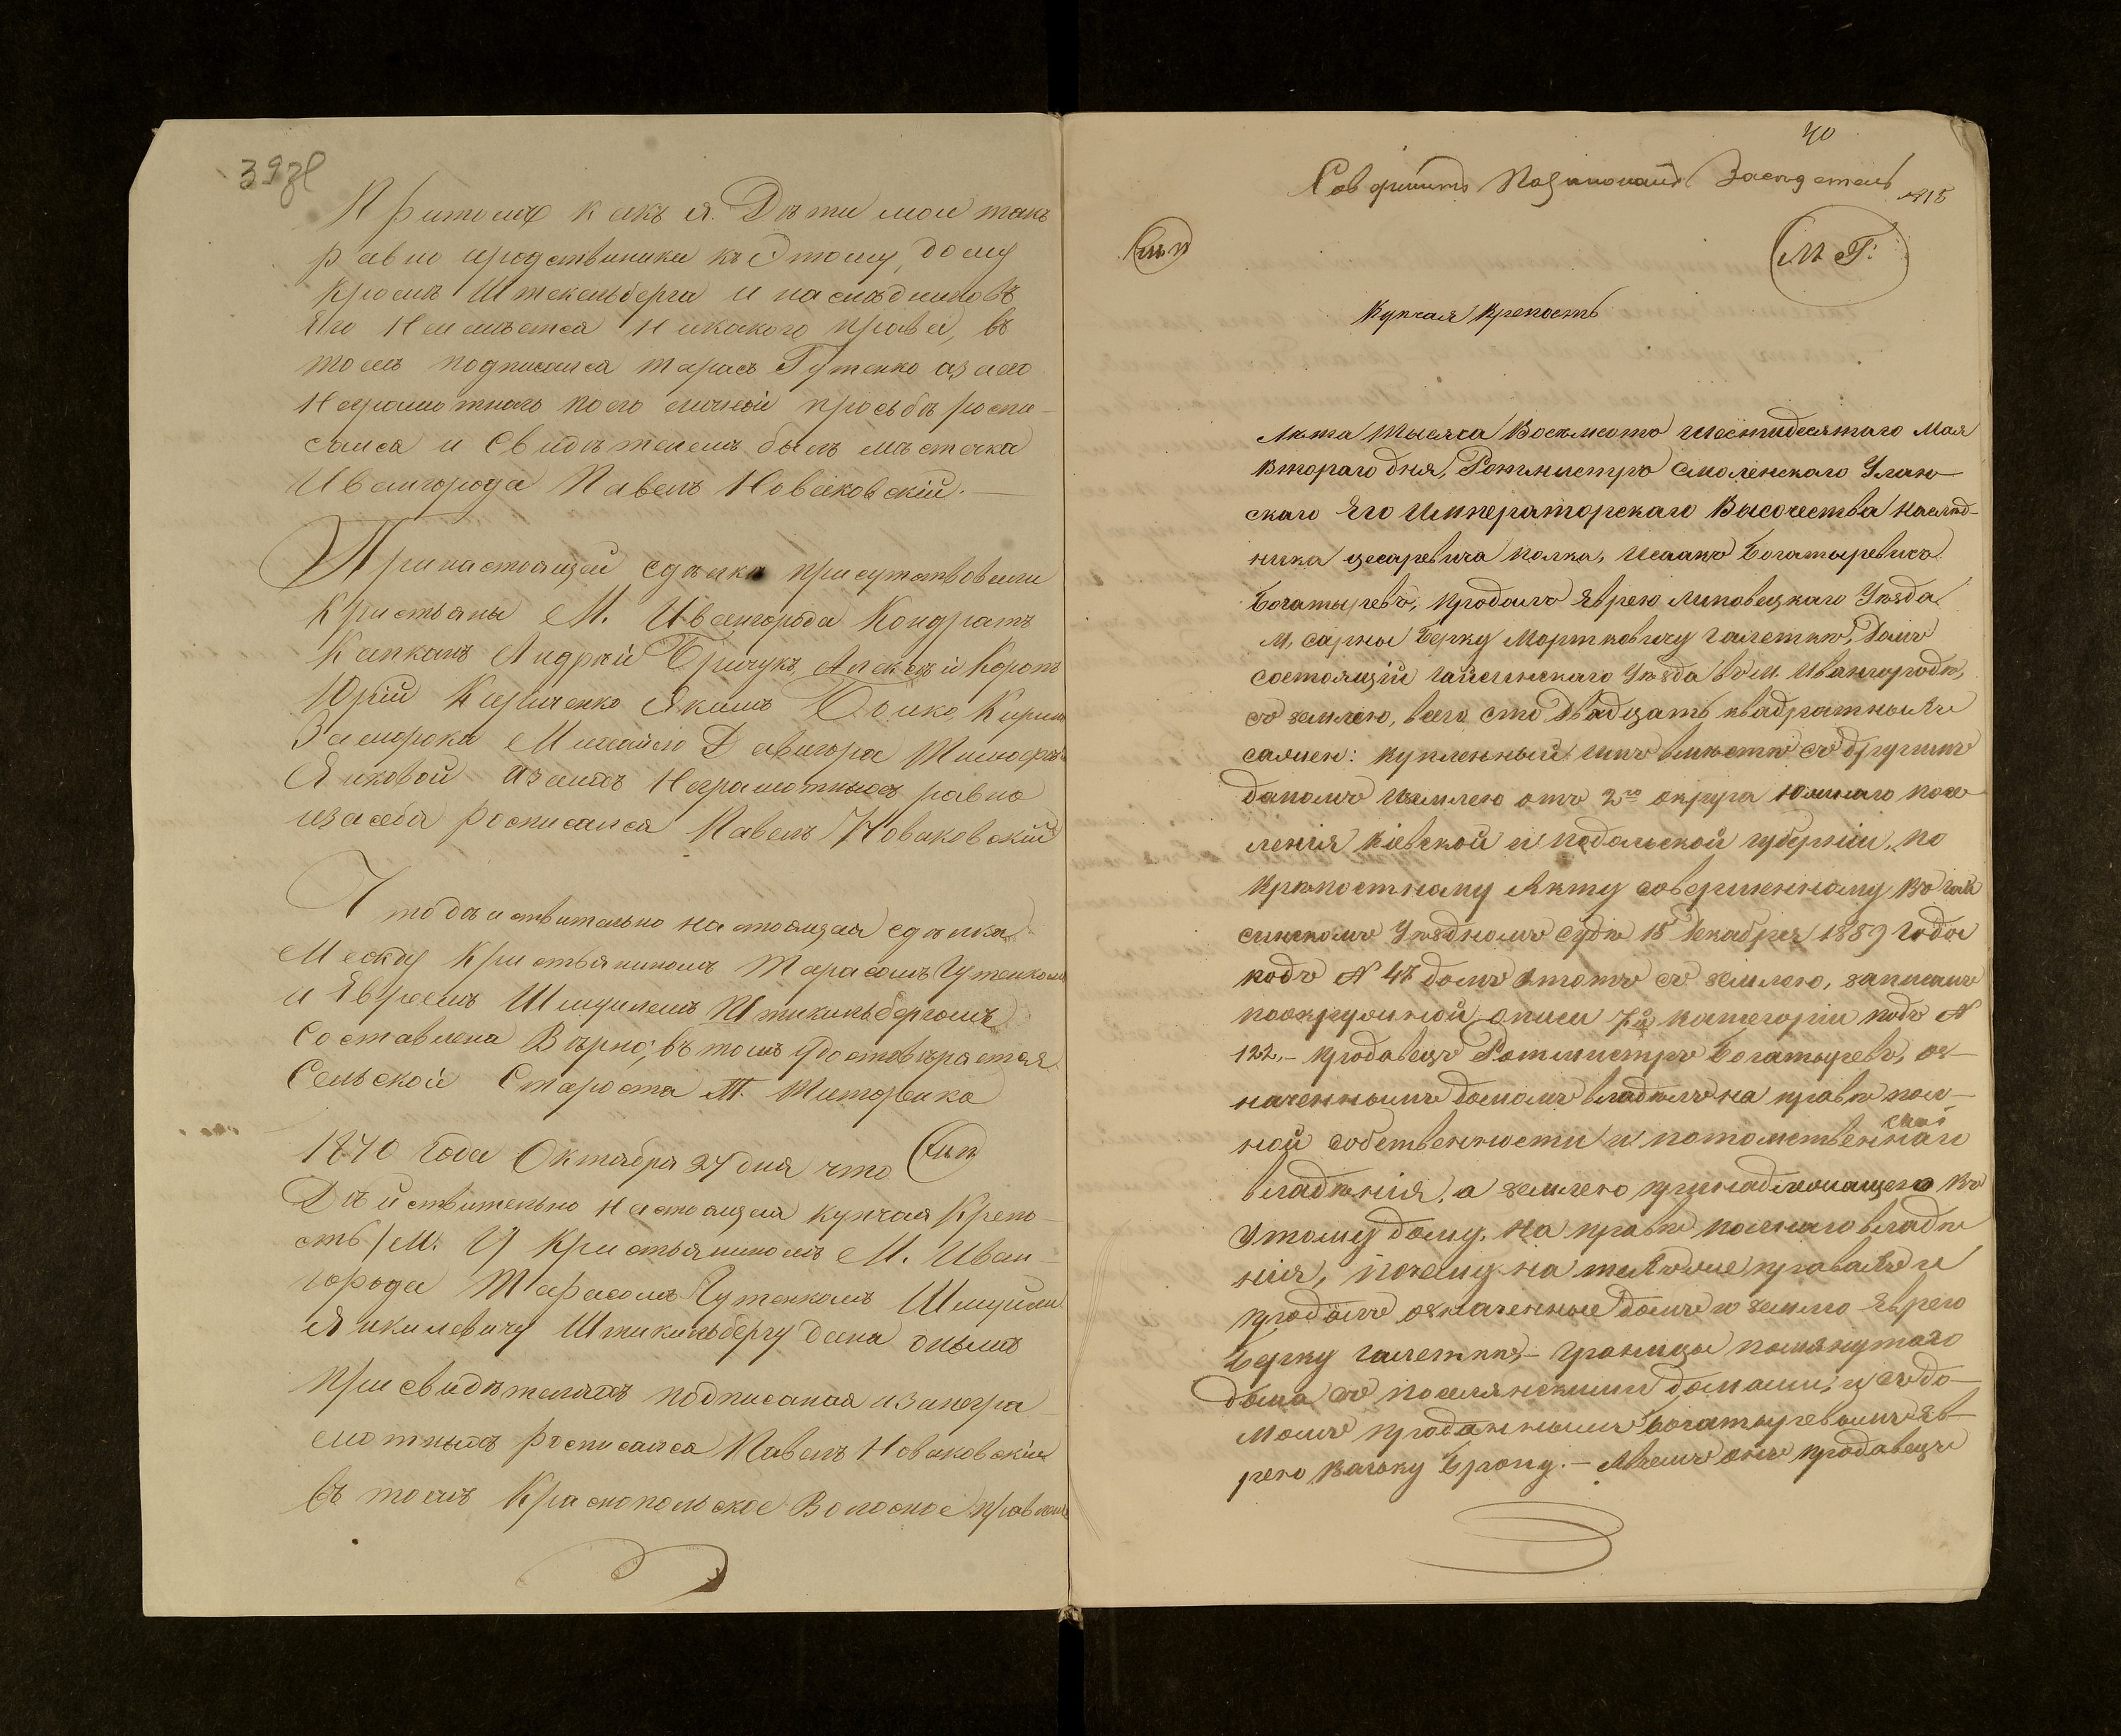 39об
Притомъ какъ я. Дѣти мои такъ
равно иродственики къ Этому, дому
кромѣ Штекельберга и наслѣдниковъ
Его Неимѣется Никакого права, въ
томъ подписался тарасъ Гутенко азаего
Неграмотнаго поего личной просьбѣ роспи-
сался и Свидѣтелемъ былъ мѣстечка
Ивангорода Павелъ Новаковскій. —
Принастоящей сдѣлкѣ присутствовали
Кристьяны М. Ивангорода Кондратъ
Капканъ Андрей Бричукъ, Алексѣй Коротъ
Юрій Кириченко Якимъ Бойко, Кирило
Заморока Михайло Давигора Тимофей
Яковой Азаихъ Неграмотныхъ равно
изасебя росписался Павелъ Новаковскій
Чтодѣйствительно настоящая сдѣлка
Между Кристьяниномъ Тарасомъ Гутенкомъ
и Евреемъ Шмулемъ Штикильбергомъ
Составлена Вѣрно, въ томъ Удостовѣряется
Сельской Староста Т.
1870 Года Октября 27 дня что (М.П.)
Дѣйствительно Настоящая купчая Крепо-
сть /М. И Кристьяниномъ М. Иван-
города Тарасомъ Гутенкомъ Шмулю
Янкилевичу Штикильбергу дана онымъ
при свидѣтеляхъ подписаная изанегра-
мотныхъ росписался Павелъ Новаковскій
Въ томъ Краснопольское Волосное правленіе
40
Засѣдатель
1815
М. Г.
Купчая Крепость
Лѣта тысяча Восемсотъ шестидесятаго Мая
втораго дня, Ротмистръ Смоленскаго Улан-
скаго Его Императорскаго Высочества Наслѣд-
ника цесаревича полка, Исаакъ Богатыревичъ
Богатыревъ, продалъ Еврею Липовецкаго Уѣзда
М. Сарны Берку Мортковичу Галеткѣ, Домъ
состоящій Гайсинскаго Уѣзда въ М. Ивангородѣ,
съ землею, всего сто двадцать квадратныхъ
сажен: купленный имъ вмѣстѣ съ другимъ
домомъ иземлею отъ 2го округа Южнаго посе-
ленія Кіевской и подольской губерніи, по
крѣпостному Акту совершенному въ Гай
синскомъ Уѣздномъ Судѣ 15 Декабря 1859 Года
подъ № 47 домъ этотъ съ землею, записанъ
поокружной описи 7й категоріи подъ №
122.- продавецъ Ротмистръ Богатыревъ, оз-
наченнымъ домомъ владѣлъ на правѣ пол-
ной собственности и потомственнаго
владѣнія, а землею принадлежащею къ
Этому дому, на правѣ полнаго владѣ
нія, почему на техъже правахъ и
продалъ означенные домъ и землю Еврею
Берку Галеткѣ, - Границы помянутаго
дома съ поселянскими домами, и съ до-
момъ проданнымъ Богатыревымъ Ев-
рею